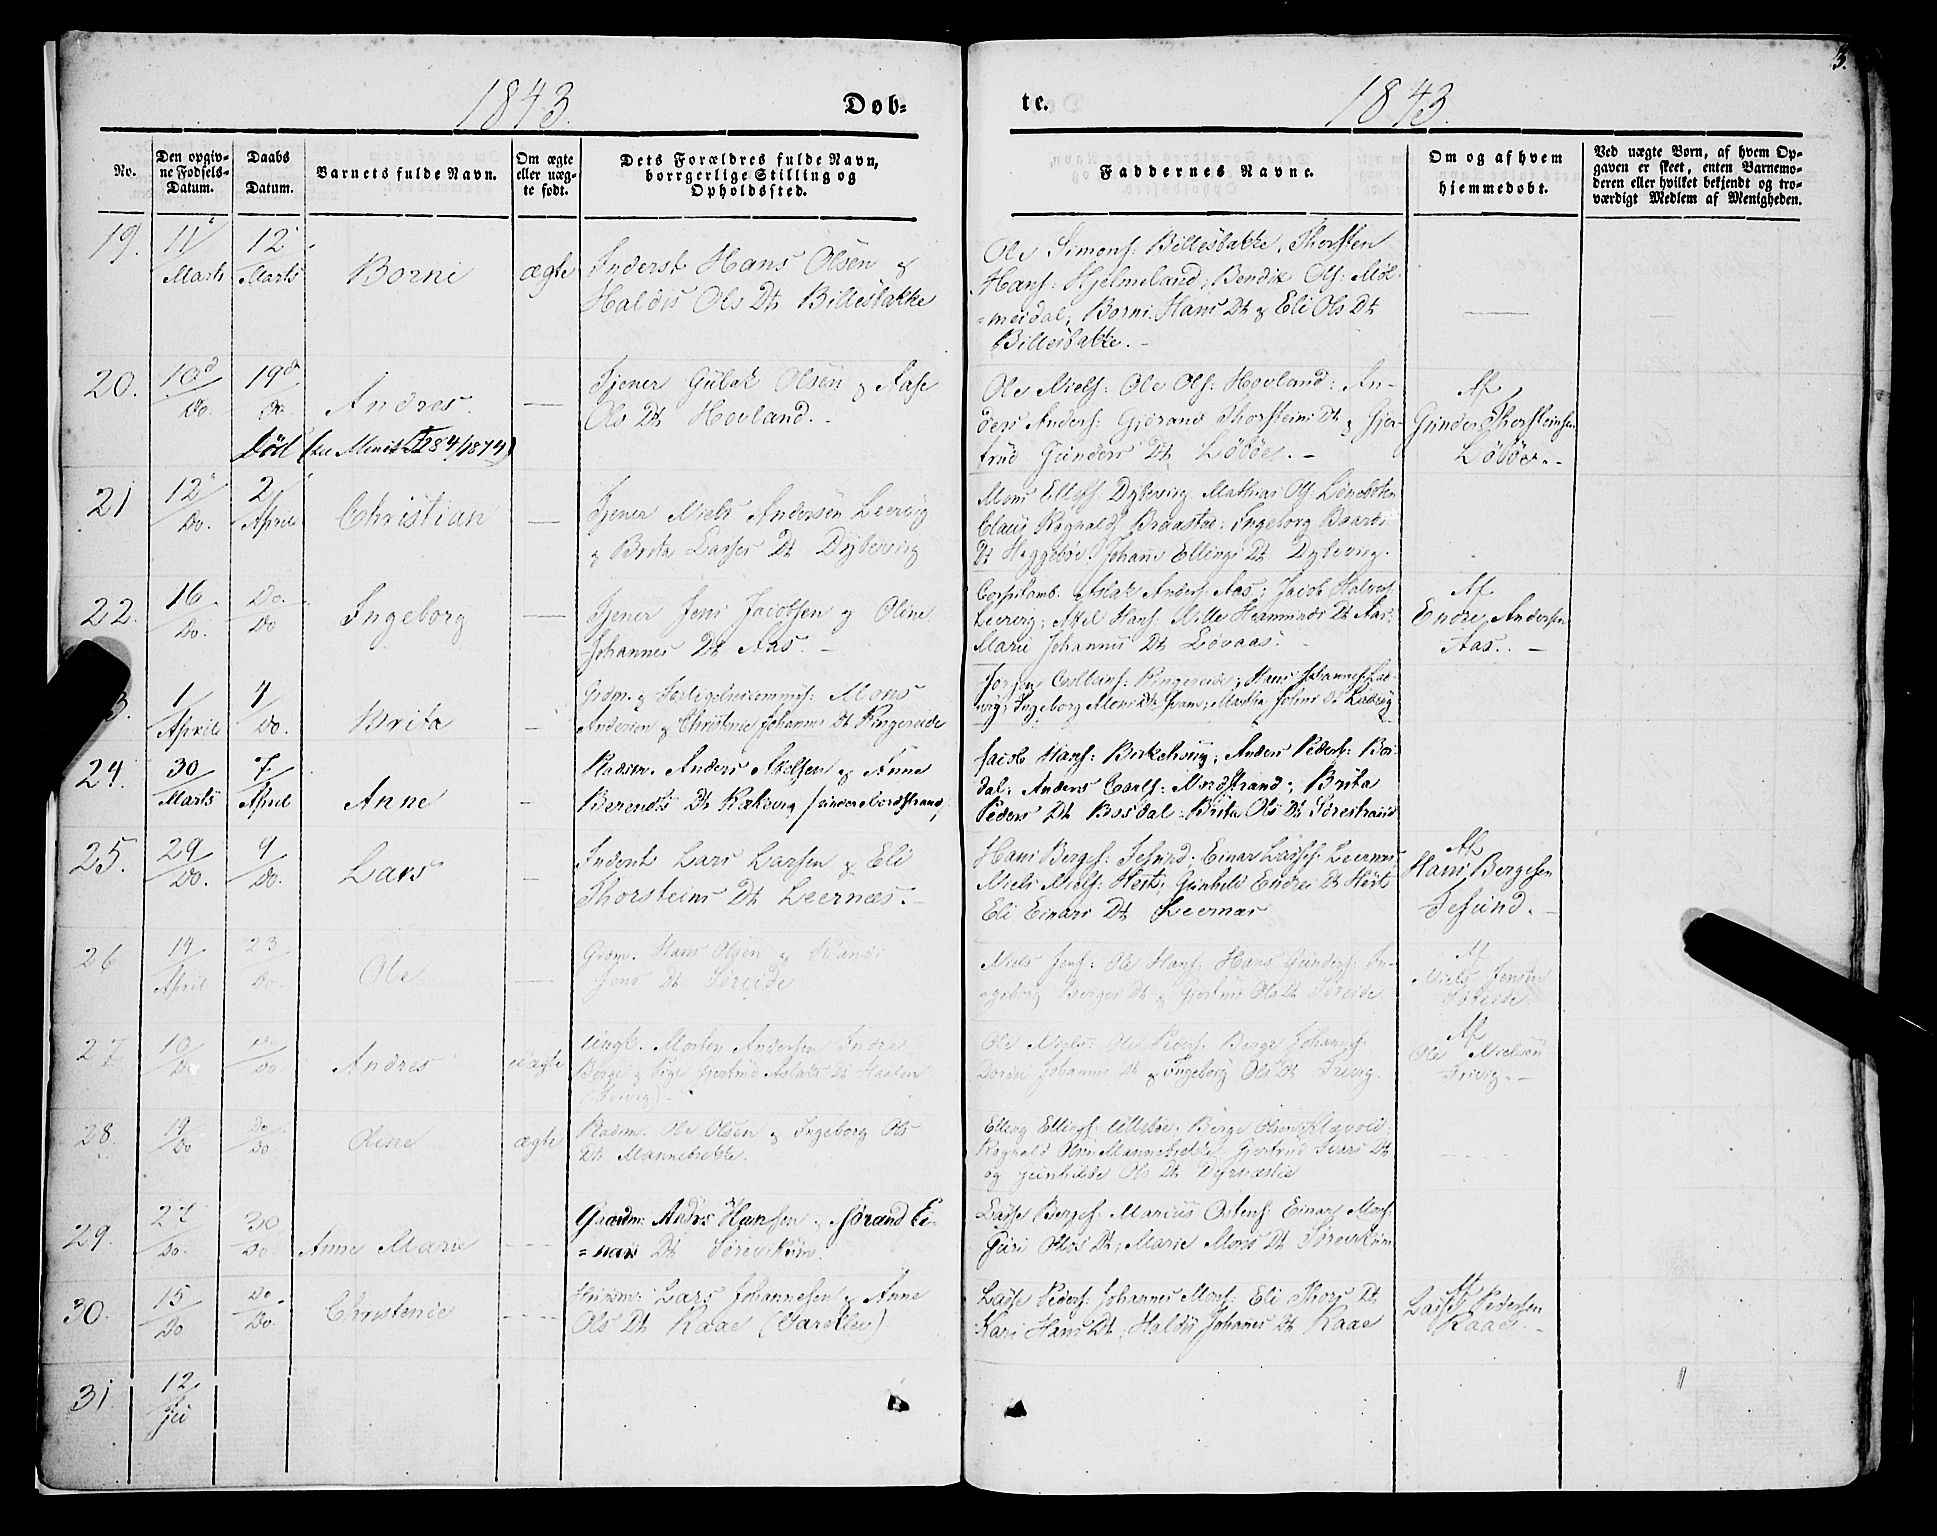 3.
1843.
Døb-
te.
1843.
No.
Den opgiv-
ne Fødsels-
Datum.
Daabs
Datum.
Barnets fulde Navn.
Om ægte
eller uæg-
te født.
Dets Forældres fulde Navn,
borrgerlige Stilling og
Opholdssted.
Faddernes Navne.
Om og af hvem
hjemmedøbt.
Ved uægte Børn, af hvem Op-
gaven er skeet, enten Barnemo-
deren eller hvilket bekjendt og tro-
værdigt Medlem af Menigheden.
19.
11
Marts
12
Marts
Borni
ægte
Inderst Hans Olsen &
Haldis Ols Dt Billesbakke
Ole Simons: Billesbakke, Thorsten
Hans: Hjelmeland; Bendix Ols: Møl-
=meidal; Borni Hans Dt & Eli Ols Dt
Billesbakke. -
20.
10d
Do.
19d
Do.
Andres.
Død (see Minist 284/1874)
Tjener Gulak Olsen & Aase
Ols Dt Hovland. -
Ole Niels: Ole Ols: Hovland: An-
ders Anders: Gjørand Thorsteins Dt & Gjer-
trud Gunders Dt Løbøe. -
Af
Gunder Thorsteinsen
Løbøe. -
21
12
Do.
2
April
Christian
Tjener Niels Andersen Leervig
& Brita Lasses Dt Dybevig
Mons Ellefs: Dybevig Mathias Ols:
Claus Ragnalds: Braastad: Ingeborg Baards
Dt Heggebøe. Johanne Ellings Dt Dybevig.
22.
16
Do.
Do.
Do
Ingeborg
Tjener Jens Jacobsen & Oline
Johannes Dt Aas. -
Aslak Anders: Aas; Jacob Halvors:
Leervig; Axel Hans: Nille Hermunds Dt Aas:
Marie Johannes Dt Løvaas.
Af
Endre Andersen
Aas. -
3.
1
April
4
Do.
Brita
Grdm. & Forligelsescommiss: Mons
Andersen & Christense Johannes Dt Ringereide
Ringereide; Hans Johannes:
Ingeborg Mons Dt Martha Johns Dt
24.
30
Marts
7
April
Anne
Pladsm. Anders Axelsen & Anne
Berendts Dt Rækevig (under Nordstrand)
Jacob Hans: Birkehoug; Anders Peders: Bos-
dal; Anders Carls: Nordstrand; Brita
Peders Dt Bosdal: Brita Ols Dt Sørestrand
25.
29
Do.
9
Do.
Lars
Inderst Lars Larsen & Eli
Thorsteins Dt Leernæs. -
Hans Berges: Tesund. Einar Lasses: Leernæs
Niels Niels: Hest; Gunhild Endres Dt Hest
Eli Einars Dt Leernæs
Af
Hans Bergesen
Tesund. -
26
14
April
23
Do.
Ole
Grdm. Hans Olsen & Randi
Jens Dt. Søreide
Niels Jens: Ole Hans: Hans Gunders: In-
=geborg Berges Dt & Gjertrud Ols Dt Søreide
Af
Niels Jensen
Søreide
27
10
Do
Do.
Andres
uægte
Ungk. Morten Andersen Indre
Berge & Pige Gjertrud Aslaks Dt Haalen
(Trivig). -
Ole Niels: Ole Peders: Berge Johannes:
Dorthe Johannes Dt & Ingeborg Ols Dt Trivig.
Af
Ole Nielsen
Trivig. -
28.
19
Do
Do
Do
Oline
ægte
Pladsm. Ole Olsen & Ingeborg Ols
Dt Mannebrekke.
Elling Ellings: Ullebøe. Berge
Ragnald Mannebrekke. Gjertrud Ivars Dt
og Gunhilde Ols Dt
29.
27
Do.
30
Do
Anne Marie
Gaardm: Andrs Hansen & Jørand Ei-
=nars Dt Sørevikum.
Lasse Berges: Marcus Ostens: Einar Mons:
Guri Mons Dt; Marie Mons Dt Sørevikum
30.
15
Do
Do
Do.
Christense
Huusm: Lars Johannesen & Anne
Ols Dt Kaae (Vareklev)
Lasse Peders: Johannes Mons: Eli Thors Dt
Kari Hans Dt; Haldis Johannes Dt Kaae
Af
Lasse Pedersen
Kaae. -
31
12